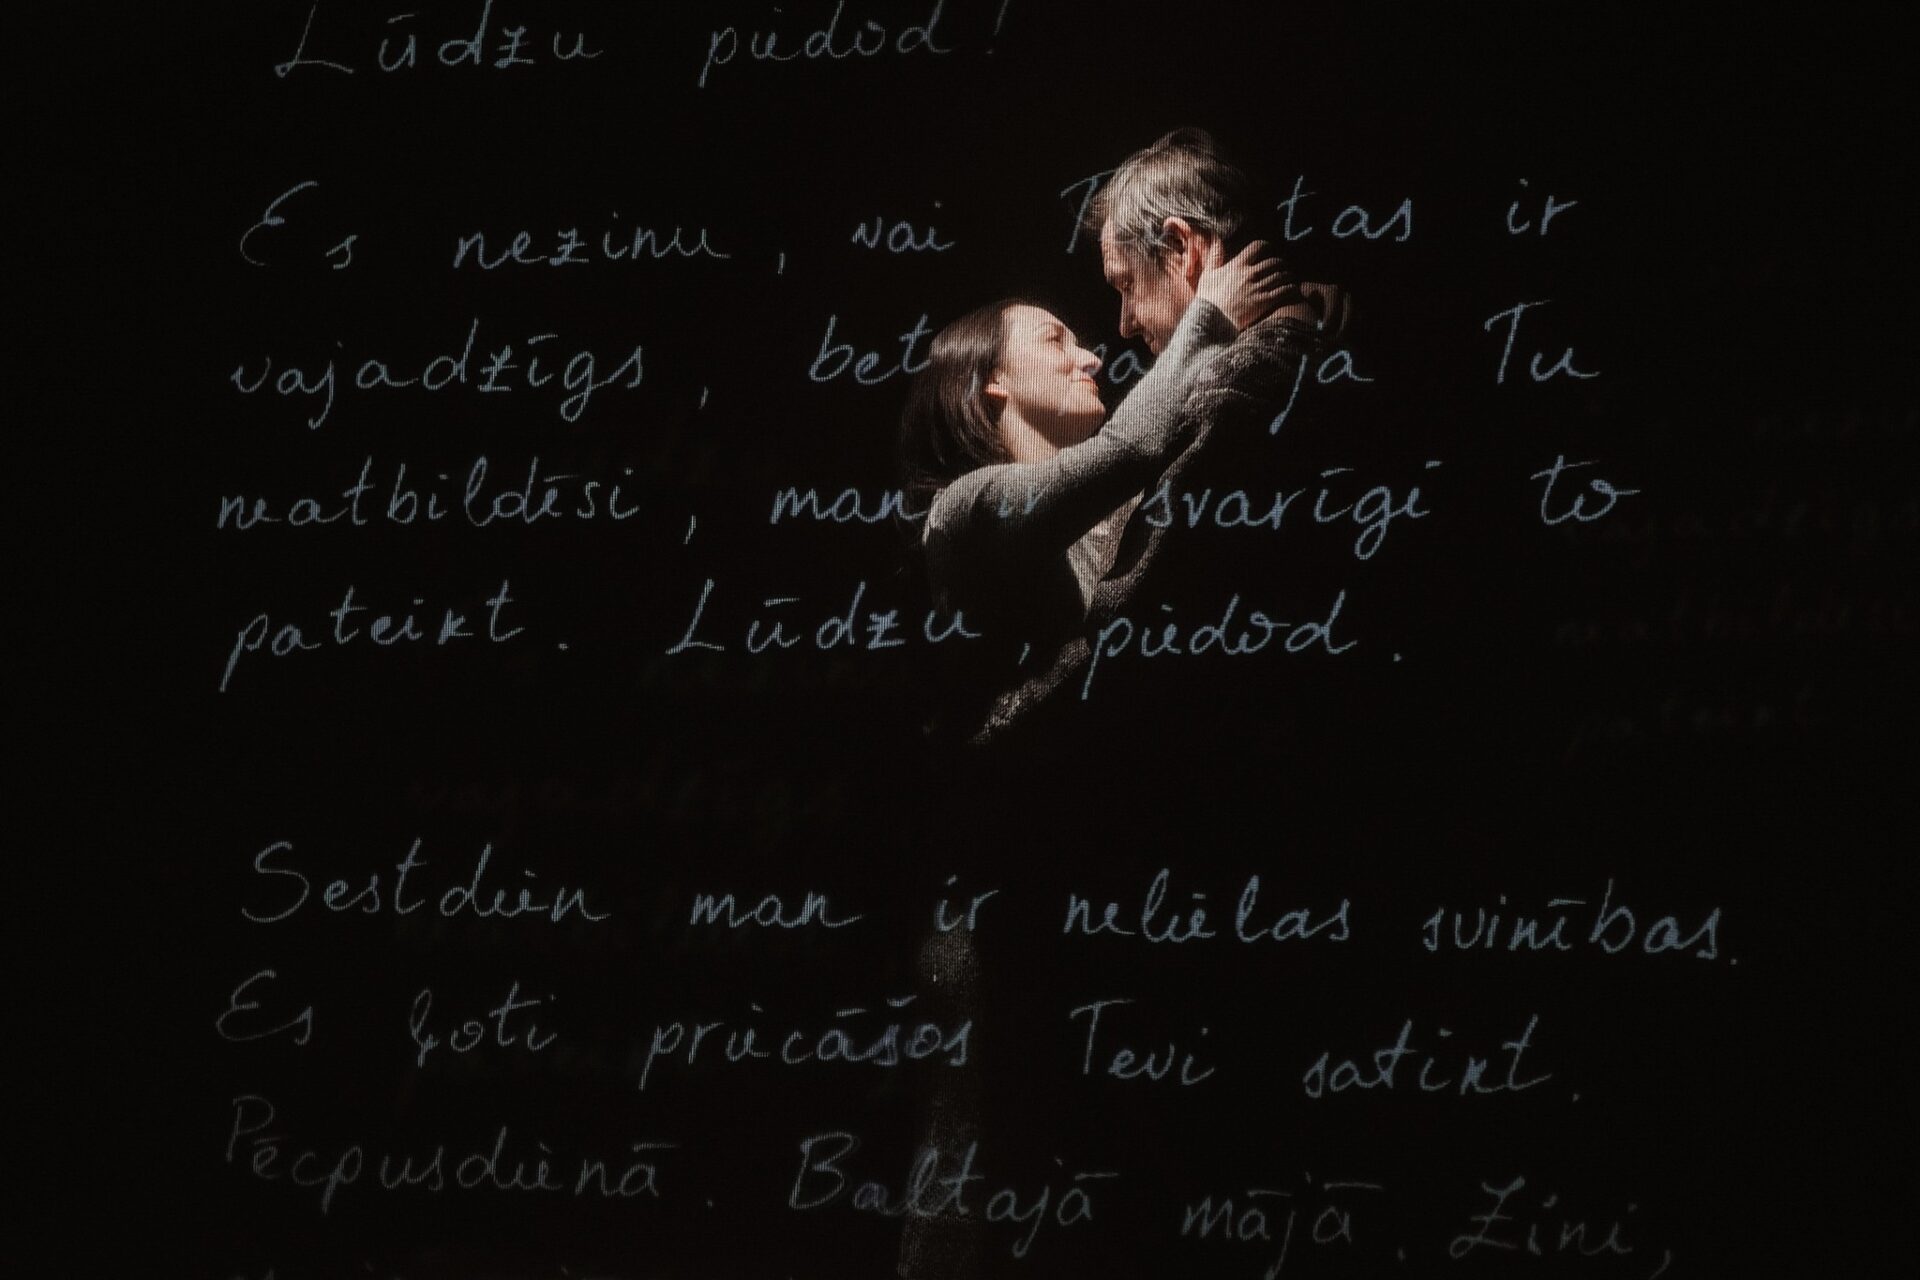 Lūdzu piedod!
Es nezinu, vai tas ir
vajadzīgs, bet, ja Tu
neatbildēsi, man ir svarīgi to
pateikt. Lūdzu, piedod.
Sestdien man ir nelielas svinības.
Es ļoti priecāšos Tevi satikt.
Pēcpusdienā. Baltajā mājā. Zini,